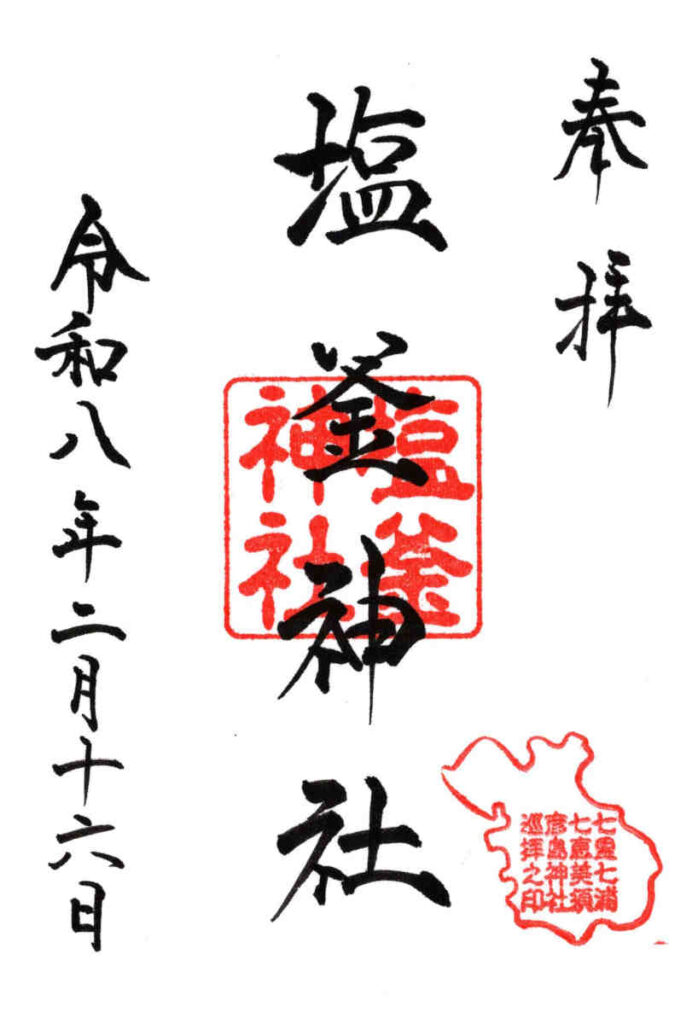 奉拝
塩釜神社
塩釜
神社
令和八年二月十六日
七里七浦
七恵美須
彦島神社
巡拝之印